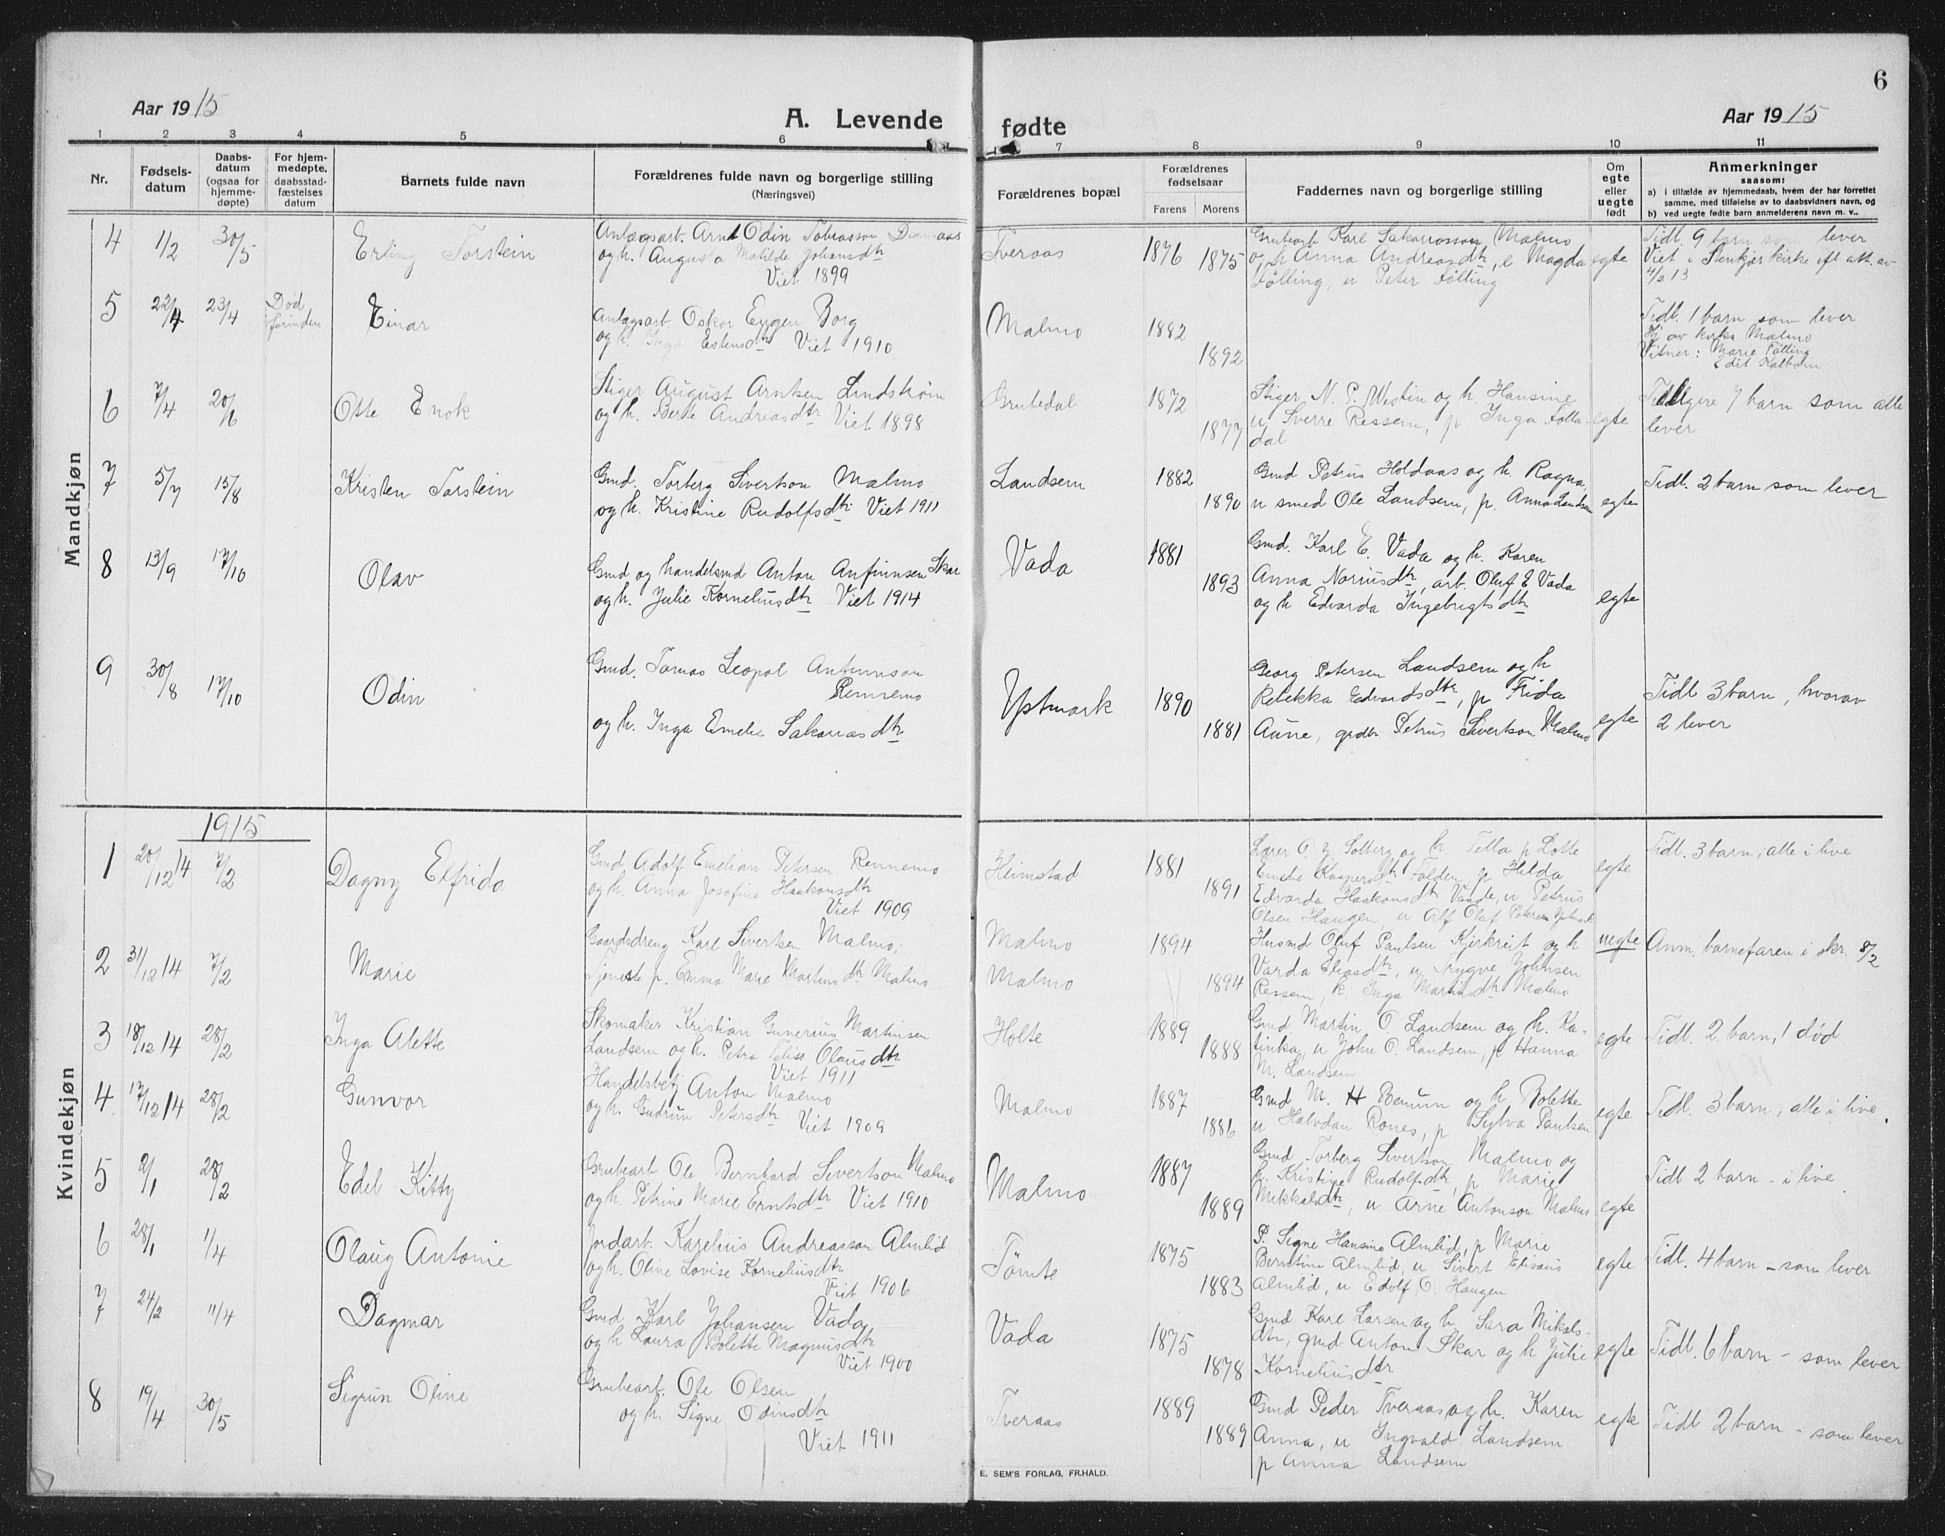 6
Aar 1915
A. Levende fødte
Aar 1915
1 2 3 4 5 6 7 8 9 10 11
Nr.
Fødsels-
datum
Daabs-
datum
(ogsaa for
hjemme-
døpte)
For hjem-
medøpte,
daabsstad-
fæstelses
datum
Barnets fulde navn
Forældrenes fulde navn og borgerlige stilling
(Næringsvei)
Forældrenes bopæl
Forældrenes
fødselsaar
Farens Morens
Faddernes navn og borgerlige stilling
Om
egte
eller
uegte
født
Anmerkninger
saasom:
a) i tilfælde av hjemmedaab, hvem der har forrettet
samme, med tilføielse av to daabsvidners navn, og
b) ved uegte fødte barn anmelderens navn m. v..
Mandkjøn
4 1/2 30/5 Erling Torstein
Anlægsart. Arnt Odin Tobiasson
og h. Augusta Matilde Johansdtr
Viet 1899
Tveraas 1876 1875
Grubearb Karl Sakariasson Malmo
og h Anna Andreasdtr, e Magda
Følling, u Peter Følling
egte
Tidl. 9 barn som lever
Viet i Stenkjær kirke efl att. av
4/2 13
5 22/4 23/4 Død forinden Einar
Anlægsart. Oskar Eugen Borg
og h. Inga Estensdtr Viet 1910
Malmo 1882 1892
Tidl. 1 barn som lever
Hj av kirks Malmo
Vitner: Marie Følling
Edit Kalborn
6 7/4 20/6 Otte Enok
Stiger August Arntsen Lindstrøm
og h. Berte Andreasdtr Viet 1898
Grubedal 1872 1877
Stiger N. P. Westin og h. Hansine
u Sverre Ressem, p Inga Folla-
dal
egte
Tidligere 7 barn som alle
lever
7 5/7 15/8 Kristen Torstein
Gmd. Torberg Sivertson Malmo
og h. Kristine Rudolfsdtr. Viet 1911
Landsem 1882 1890
Gmd Petrus Holdaas og h Ragna,
u smed Ole Landsem, p. Anna Landsem
egte
Tidl. 2 barn som lever
8 13/9 17/10 Olav
Gmd og handelsmd Anton Anfinnsen Skar
og h. Julie Korneliusdtr Viet 1914
Vada 1881 1893
Gmd. Karl E. Vada og h. Karen
Anna Noriusdtr, arb. Oluf E Vada
og h Edvarda Ingebrigtsdtr
egte
9 30/8 17/10 Odin
Gmd. Tomas Leopol Antonnson
Rennemo
og h. Inga Emelie Sakariasdtr
Ystmark 1890 1881
Georg Petersen Landsem og h
Rebekka Edvardsdtr, p Frida
Aune, grdbr Petrus Sivertson Malmo
egte
Tidl 3 barn, hvorav
2 lever
Kvindekjøn
1915
1 20/12 14 7/2 Dagny Elfrida
Gmd Adolf Emelian Petersen Rennemo
og h. Anna Josefine Haakonsdtr
Viet 1909
Heimstad 1881 1891
Lærer O. Z Solberg og h Tella p Lotte
Emelie Kaspersdtr Folden p Hilda
Edvarda Haakonsdtr Vaade, u Petrus
Olsen Haugen u Alf Olaf Petersen Ystmark
egte
Tidl. 3 barn, alle i live
2 31/12 14 7/2 Marie
Gaardsdreng Karl Sivertsen Malmo,
Tjeneste p. Emma Marie Martinsdtr Malmo
Malmo 1894
Malmo 1894
Husmd Oluf Paulsen Kjirkreit og h
Varda Eliasdtr, u Trygve Johnsen
Ressem, k. Inga Martinsdtr Malmo
uegte
Anm barnefaren i skr. 8/2
3 18/12 14 28/2 Inga Alette
Skomaker Kristian Gunerius Martinsen
Landsem og h. Petra Olausdtr
Viet 1911
Holte 1889 1888
Gmd Martin O. Landsem og h. Ka-
tinka, u John O. Landsem, p Hanna
M. Landsem
egte
Tidl. 2 barn, 1 død
4 17/12 14 28/2 Gunvor
Handelsbetj Anton Malmo
og h. Gudrun Petersdtr
Viet 1909
Malmo 1887 1886
Gmd M. H Benum og h Bolette
u Halvdan Rones, p Sylva Paulsen
egte
Tidl. 3 barn, alle i live.
5 2/1 28/2 Edel Kitty
Grubearb Ole Bernhard Sivertson Malmo
og h. Petrine Marie Erntsdtr Viet 1910
Malmo 1887 1889
Gmd Torberg Sivertson Malmo og
h. Kristine Rudolfsdtr, p Marie
Mikkalsdtr, u Arne Antonson Malmo
egte
Tidl 2 barn - i live
6 28/1 1/4 Olaug Antonie
Jordarb. Karelius Andreasson Almlid
og h. Oline Lovise Kornelius dtr
Viet 1906
Tømte 1875 1883
P. Signe Hansine Almlid, p Marie
Berntine Almlid, u Sivert Elisæus
Almlid, u Edolf O. Haugen
egte
Tidl. 4 barn - som lever
7 24/2 11/4 Dagmar
Gmd Karl Johansen Vada
og h Laura Bolette Magnusdtr
Viet 1900
Vada 1875 1878
Gmd Karl Larsen og h Sara Mikals-
dtr, gmd Anton Skar og h Julie
Korneliusdtr
egte
Tidl. 6 barn - som lever
8 19/4 30/5 Sigrun Oline
Grubearb. Ole Olsen
og h. Signe Odinsdtr
Viet 1911
Tveraas 1889 1889
Gmd Peder Tveraas og h. Karen
Anna, u Ingvald Landsem
p Anna Landsem
egte
Tidl 2 barn - som lever
E. SEM'S FORLAG, FR.HALD.